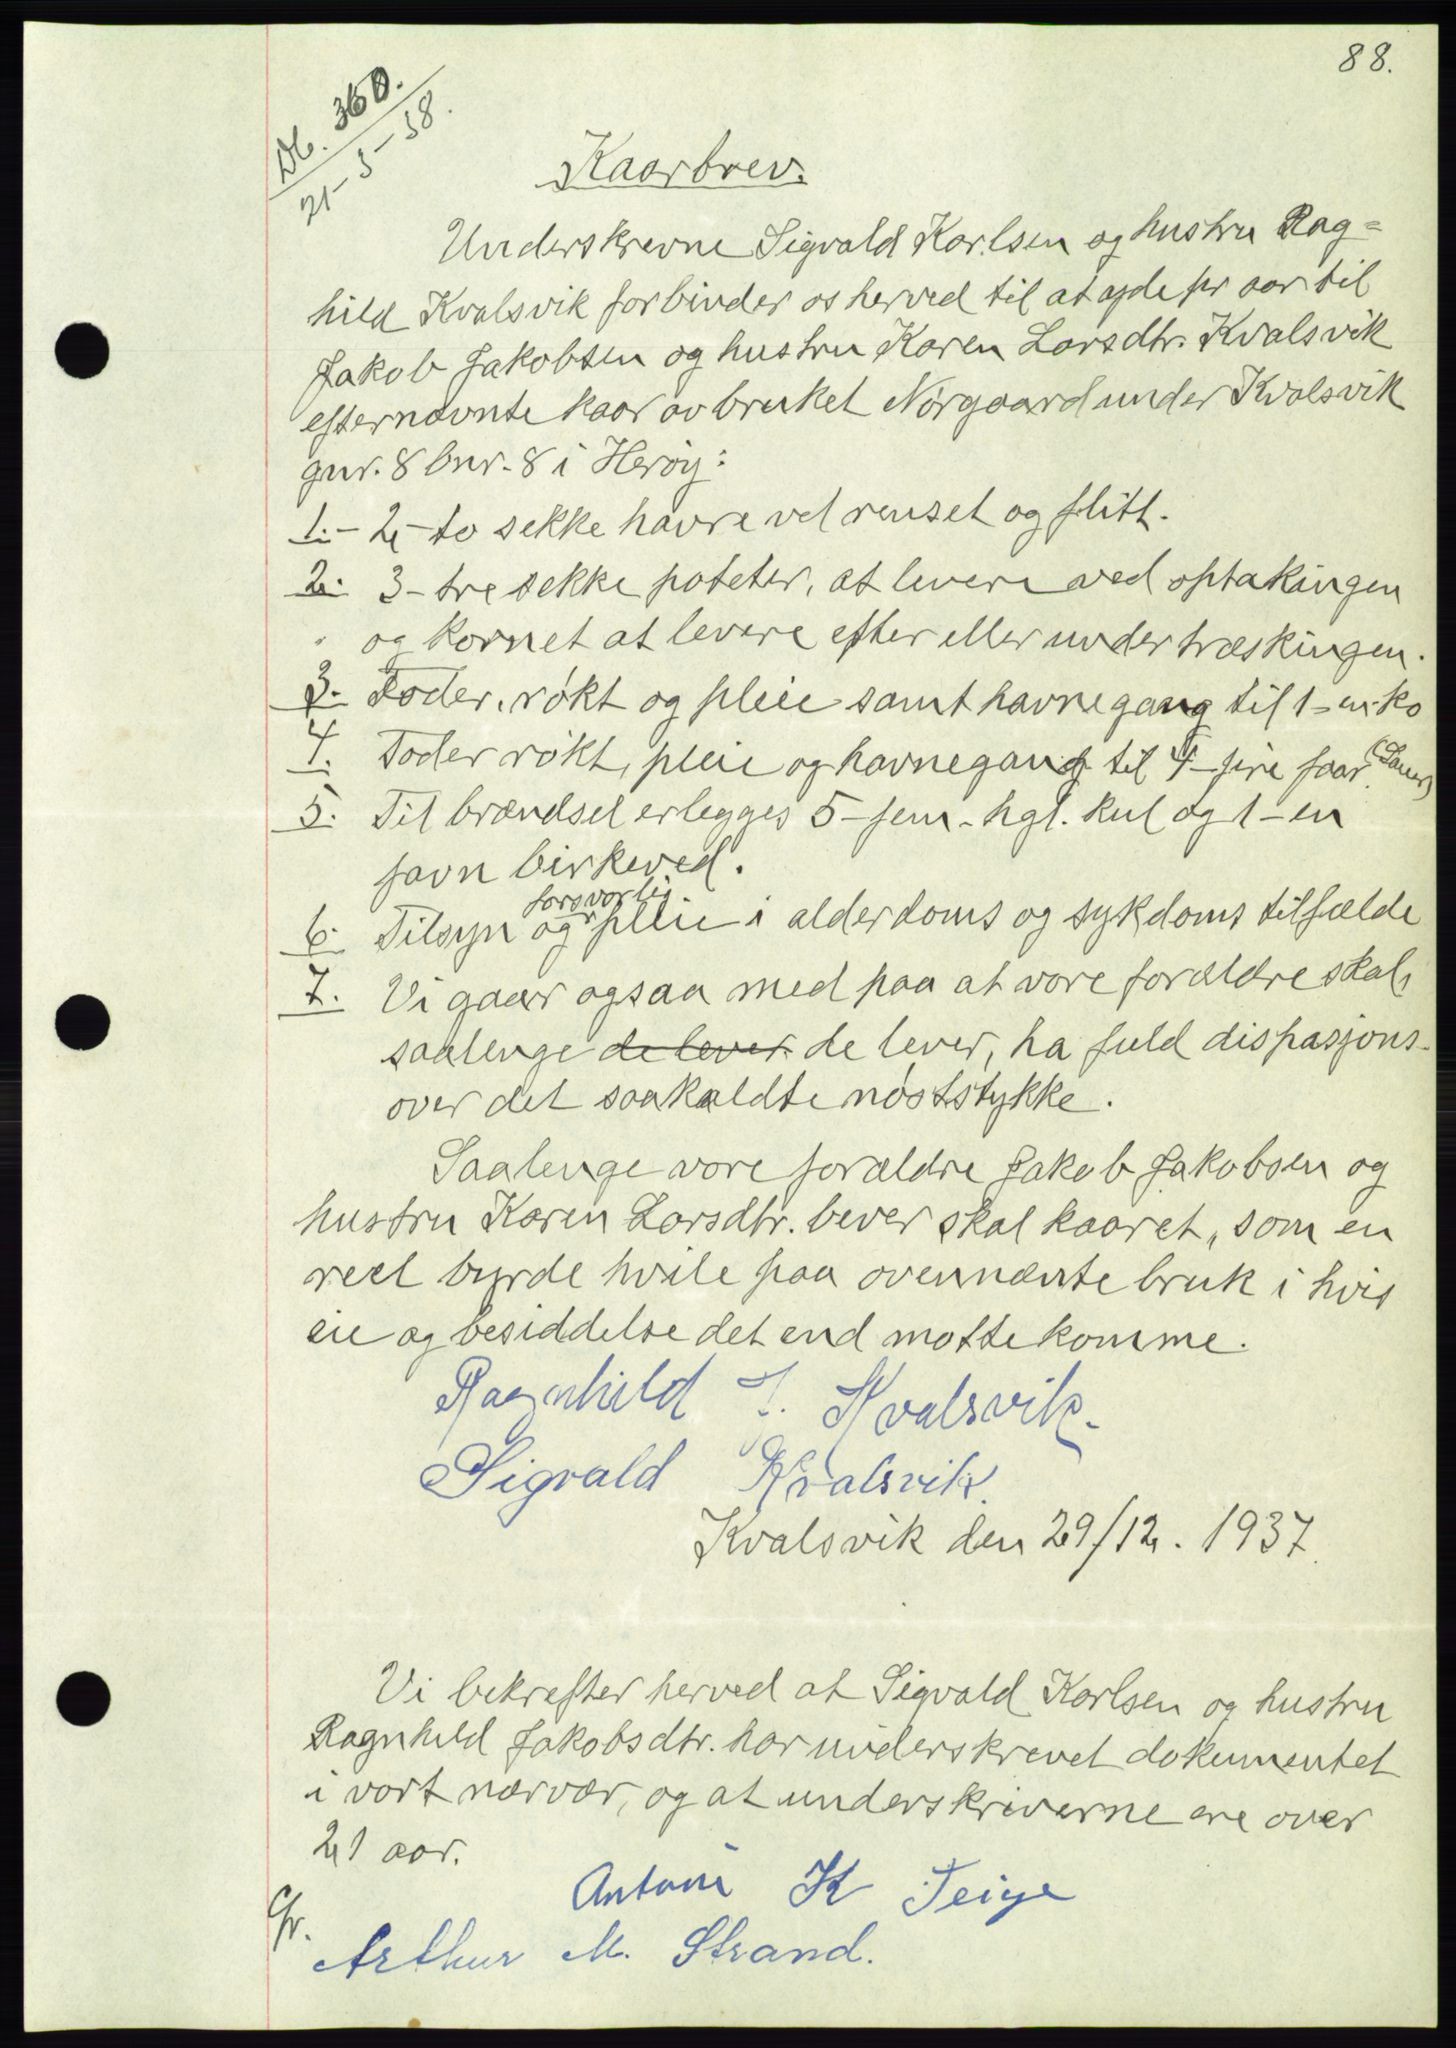 88.
Db. 360.
21-3-38.
Kaarbrev.
Underskrevne Sigvald Karlsen og hustru Rag=
hild Kvalsvik forbinder os herved til at yde pr aar til
Jakob Jakobsen og hustru Karen Larsdtr. Kvalsvik
efternævnte kaar av bruket Nørgaard under Kvalsvik
gnr. 8 bnr. 8 i Herøy:
1.- 2,- to sekke havre vel renset og flitt.
2. 3- tre sekke poteter, at levere ved optakingen
og kornet at levere efter eller under træskingen.
3. Foder, røkt og pleie samt havnegang til 1- en- ko
4. Foder røkt, pleie og havnegang til 4- fire faar.
5. Til brændsel erlegges 5- fem- hgl. kul og 1- en
favn birkeved.
6. Tilsyn og forsvarlig pleie i alderdoms og sykdoms tilfælde
7. Vi gaar ogsaa med paa at vore forældre skal,
saalenge de lever de lever, ha fuld dispasjons-
over det saakaldte nøststykke.
Saalenge vore forældre Jakob Jakobsen og
hustru Karen Larsdtr. lever skal kaaret, som en
reel byrde hvile paa ovennænte bruk i hvis
eie og besiddelse det end matte komme.
Ragnhild J. Kvalsvik.
Sigvald Kvalsvik.
Kvalsvik den 29/12. 1937.
Vi bekrefter herved at Sigvald Karlsen og hustru
Ragnhild Jakobsdtr. har underskrevet dokumentet
i vort nærvær, og at underskriverne ere over
21 aar.
Anton K Teige
Arthur M. Strand.